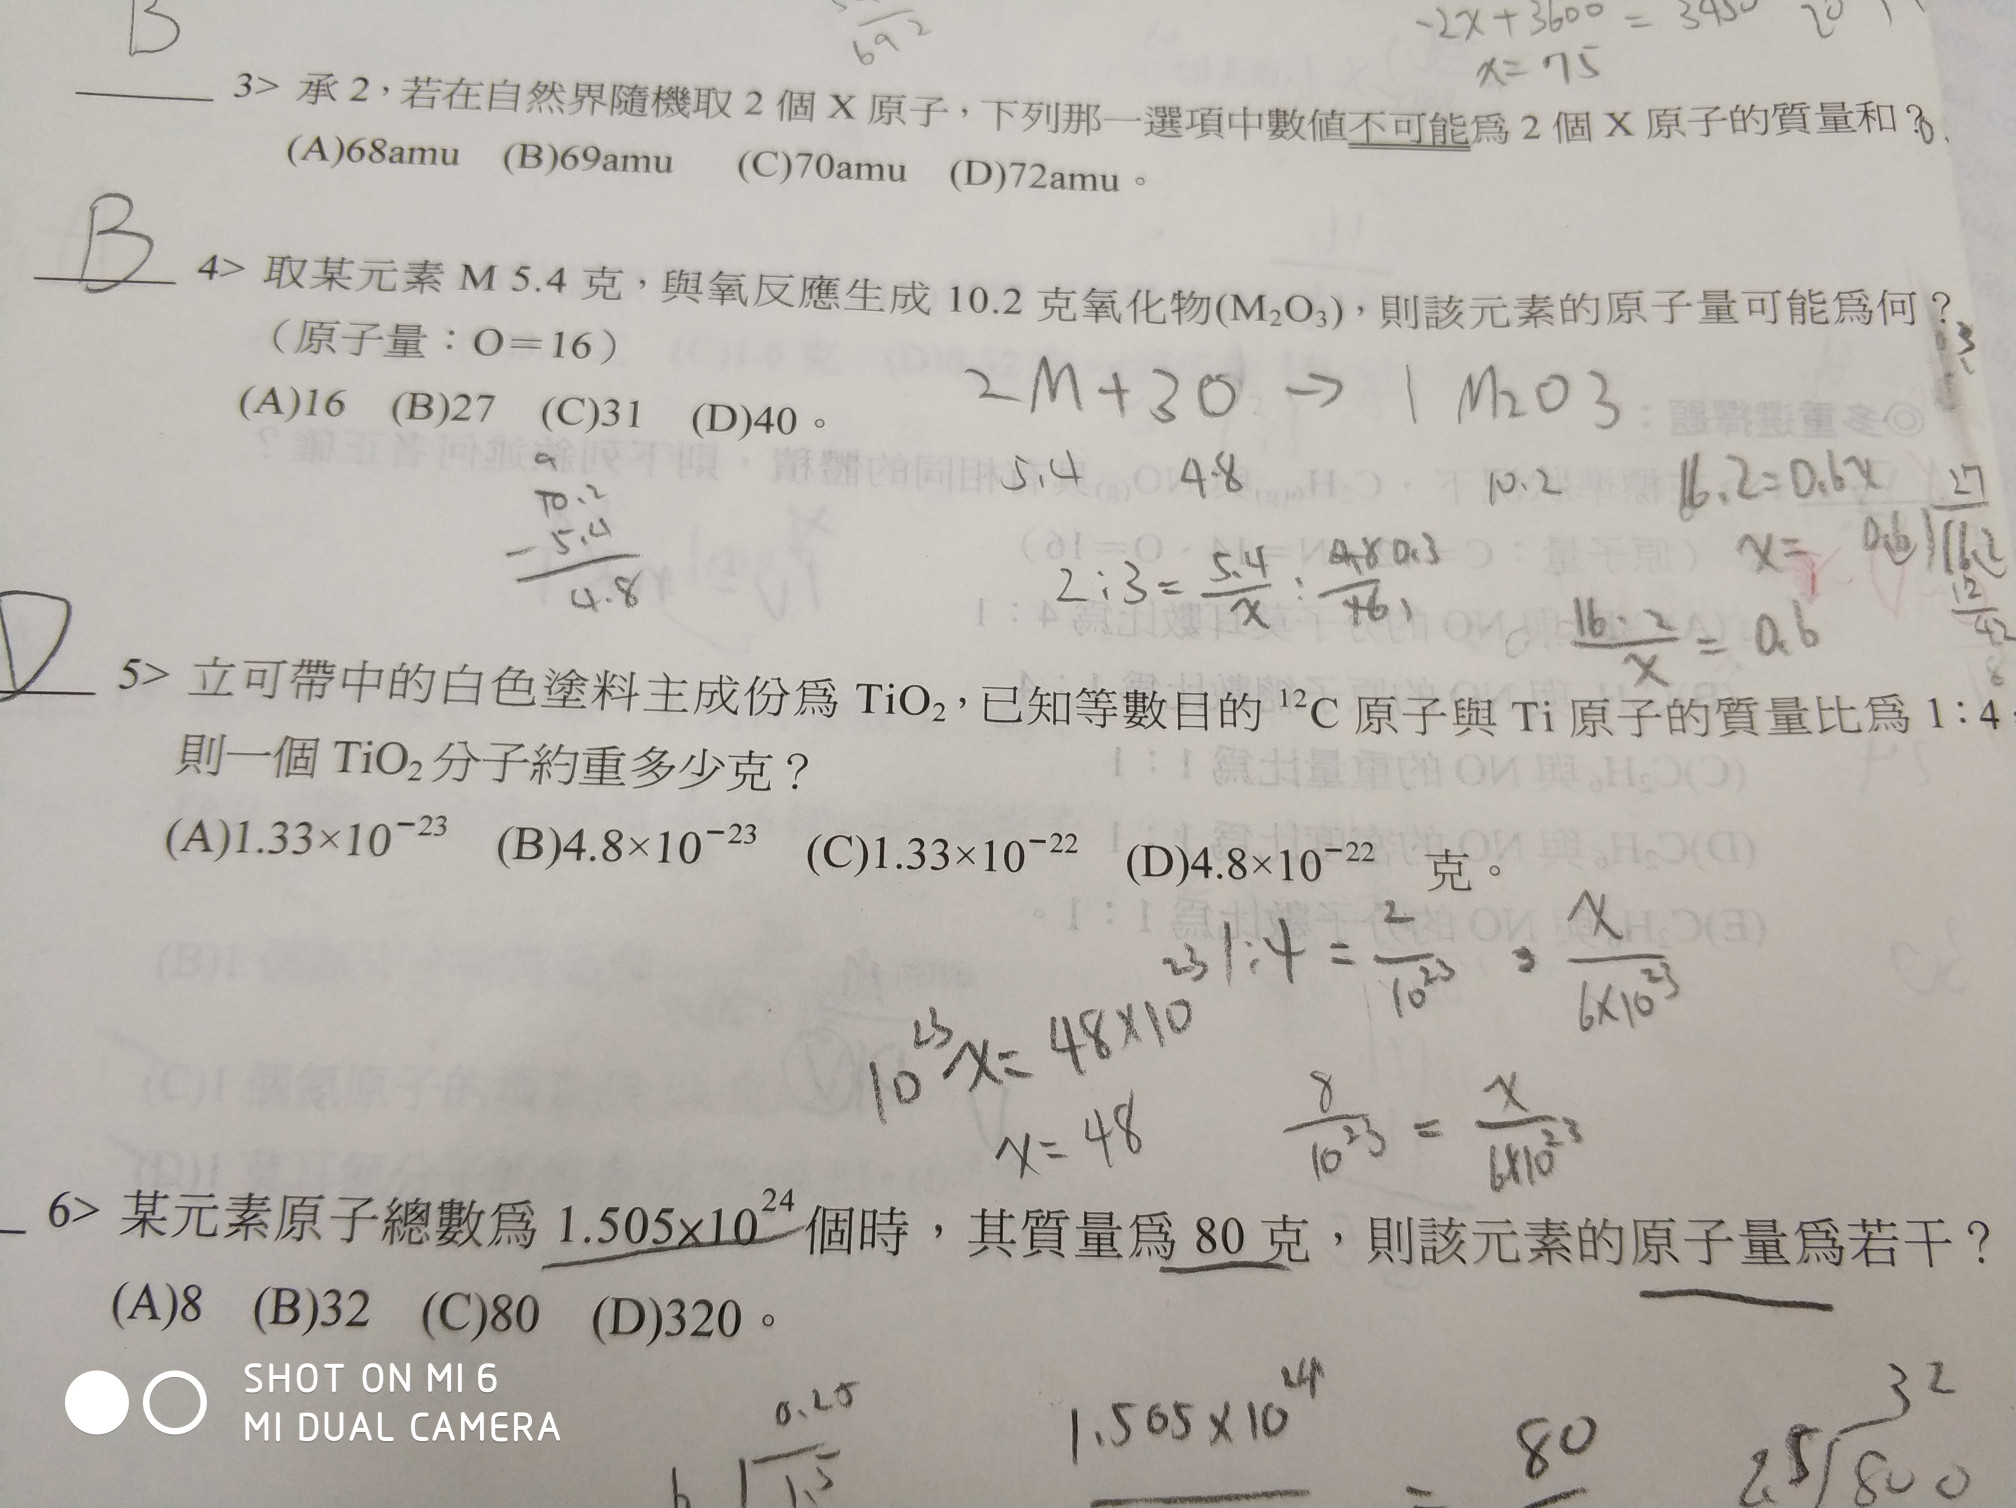 B
692
-2x+3600 = 3450
x=75
3> 承2，若在自然界隨機取2個X原子，下列那一選項中數值不可能為2個X原子的質量和？
(A)68amu (B)69amu (C)70amu (D)72amu。
B
4> 取某元素M 5.4克，與氧反應生成10.2克氧化物(M₂O₃)，則該元素的原子量可能為何？
（原子量：O＝16）
(A)16 (B)27 (C)31 (D)40。
2M+3O → 1 M2O3
5.4 4.8 10.2
16.2=0.6x
10.2
-5.4
4.8
2:3= 5.4/x : 4.8/16 0.3
x= 27
0.6 16.2
12
42
16.2/x = 0.6
D
5> 立可帶中的白色塗料主成份為TiO₂，已知等數目的¹²C原子與Ti原子的質量比為1：4
則一個TiO₂分子約重多少克？
(A)1.33×10⁻²³ (B)4.8×10⁻²³ (C)1.33×10⁻²² (D)4.8×10⁻²² 克。
1:4 = 2/10²³ : x/6×10²³
10²³x= 48×10²³
x=48
8/10²³ = x/6×10²³
6> 某元素原子總數為1.505×10²⁴個時，其質量為80克，則該元素的原子量為若干？
(A)8 (B)32 (C)80 (D)320。
SHOT ON MI 6
MI DUAL CAMERA
0.25
1.505×10²⁴
= 80
32
25 800